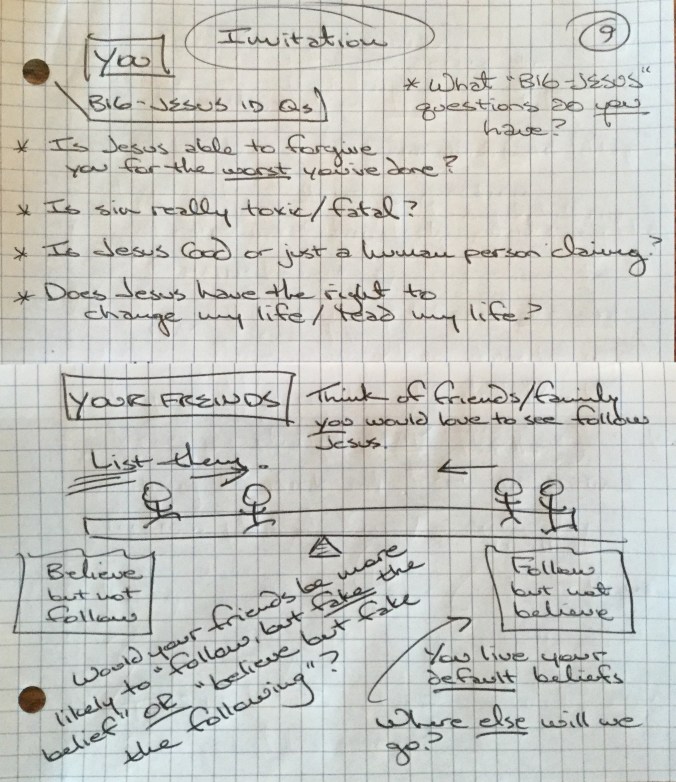 Invitation
9
You
BIG-JESUS ID Qs
* What "BIG-JESUS"
questions do you
have?
* Is Jesus able to forgive
you for the worst you've done?
* Is sin really toxic/fatal?
* Is Jesus God or just a human person claiming?
* Does Jesus have the right to
change my life/lead my life?
YOUR FREINDS
Think of friends/family
you would love to see follow
Jesus.
List them.
Believe
but not
follow
Follow
but not
believe
Would your friends be more
likely to "follow, but fake the
belief" OR "believe but fake
the following"?
You live your
default beliefs
Where else will we
go?